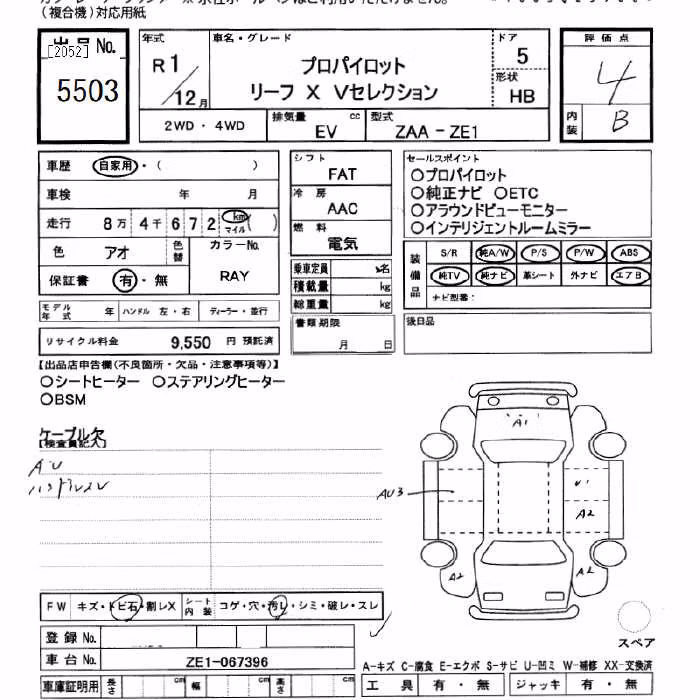 (複合機)対応用紙
出品No. [2052]
5503
年式
R1/12月
車名・グレード
プロパイロット
リーフ X Vセレクション
ドア
5
形状
HB
評価点
4
内装
B
2WD・4WD
排気量 cc
EV
型式
ZAA-ZE1
車歴 自家用・( )
車検 年 月
走行 8万 4千 6 7 2 km マイル ( )
色 アオ 色替
カラーNo.
RAY
保証書 有・無
モデル年式 年 ハンドル 左・右 ディーラー・並行
リサイクル料金 9,550 円 預託済
シフト
FAT
冷房
AAC
燃料
電気
乗車定員 名
積載量 kg
総重量 kg
書類期限
月 日
セールスポイント
○プロパイロット
○純正ナビ ○ETC
○アラウンドビューモニター
○インテリジェントルームミラー
装備品
S/R 純A/W P/S P/W ABS
純TV 純ナビ 革シート 外ナビ エアB
ナビ型番:
後日品
【出品店申告欄(不良箇所・欠品・注意事項等)】
○シートヒーター ○ステアリングヒーター
○BSM
ケーブル欠
【検査員記入】
AU
ハンドルスレ
A1
AU3
U1
A2
A2
A2
FW キズ・トビ石・割レX
シート内装 コゲ・穴・汚レ・シミ・破レ・スレ
登録No.
車台No. ZE1-067396
車庫証明用 長さ cm 幅 cm 高さ cm
スペア
A-キズ C-腐食 E-エクボ S-サビ U-凹ミ W-補修 XX-交換済
工具 有・無 ジャッキ 有・無